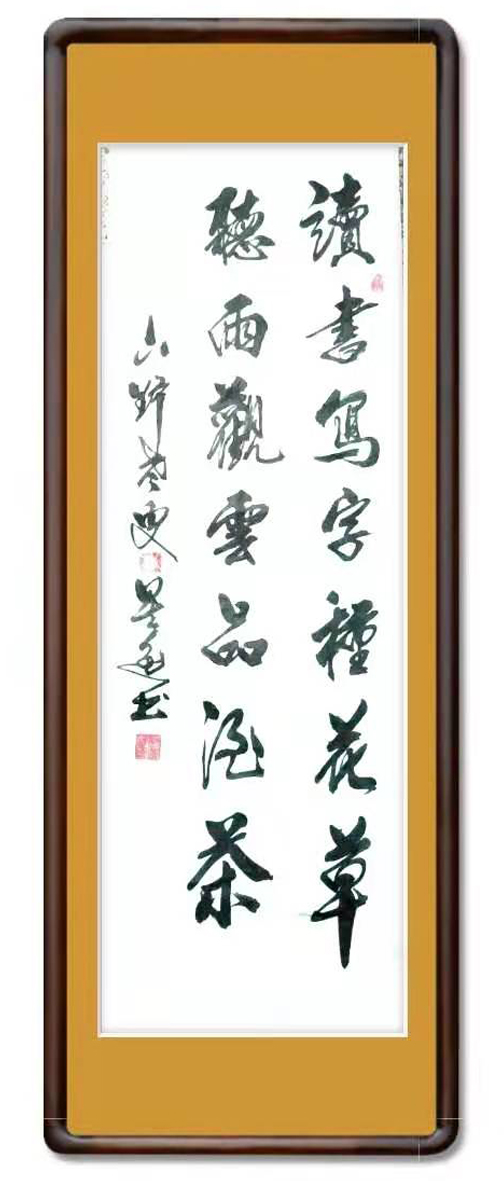 讀書寫字種花草
聽雨觀雲品酒茶
山野老叟
書